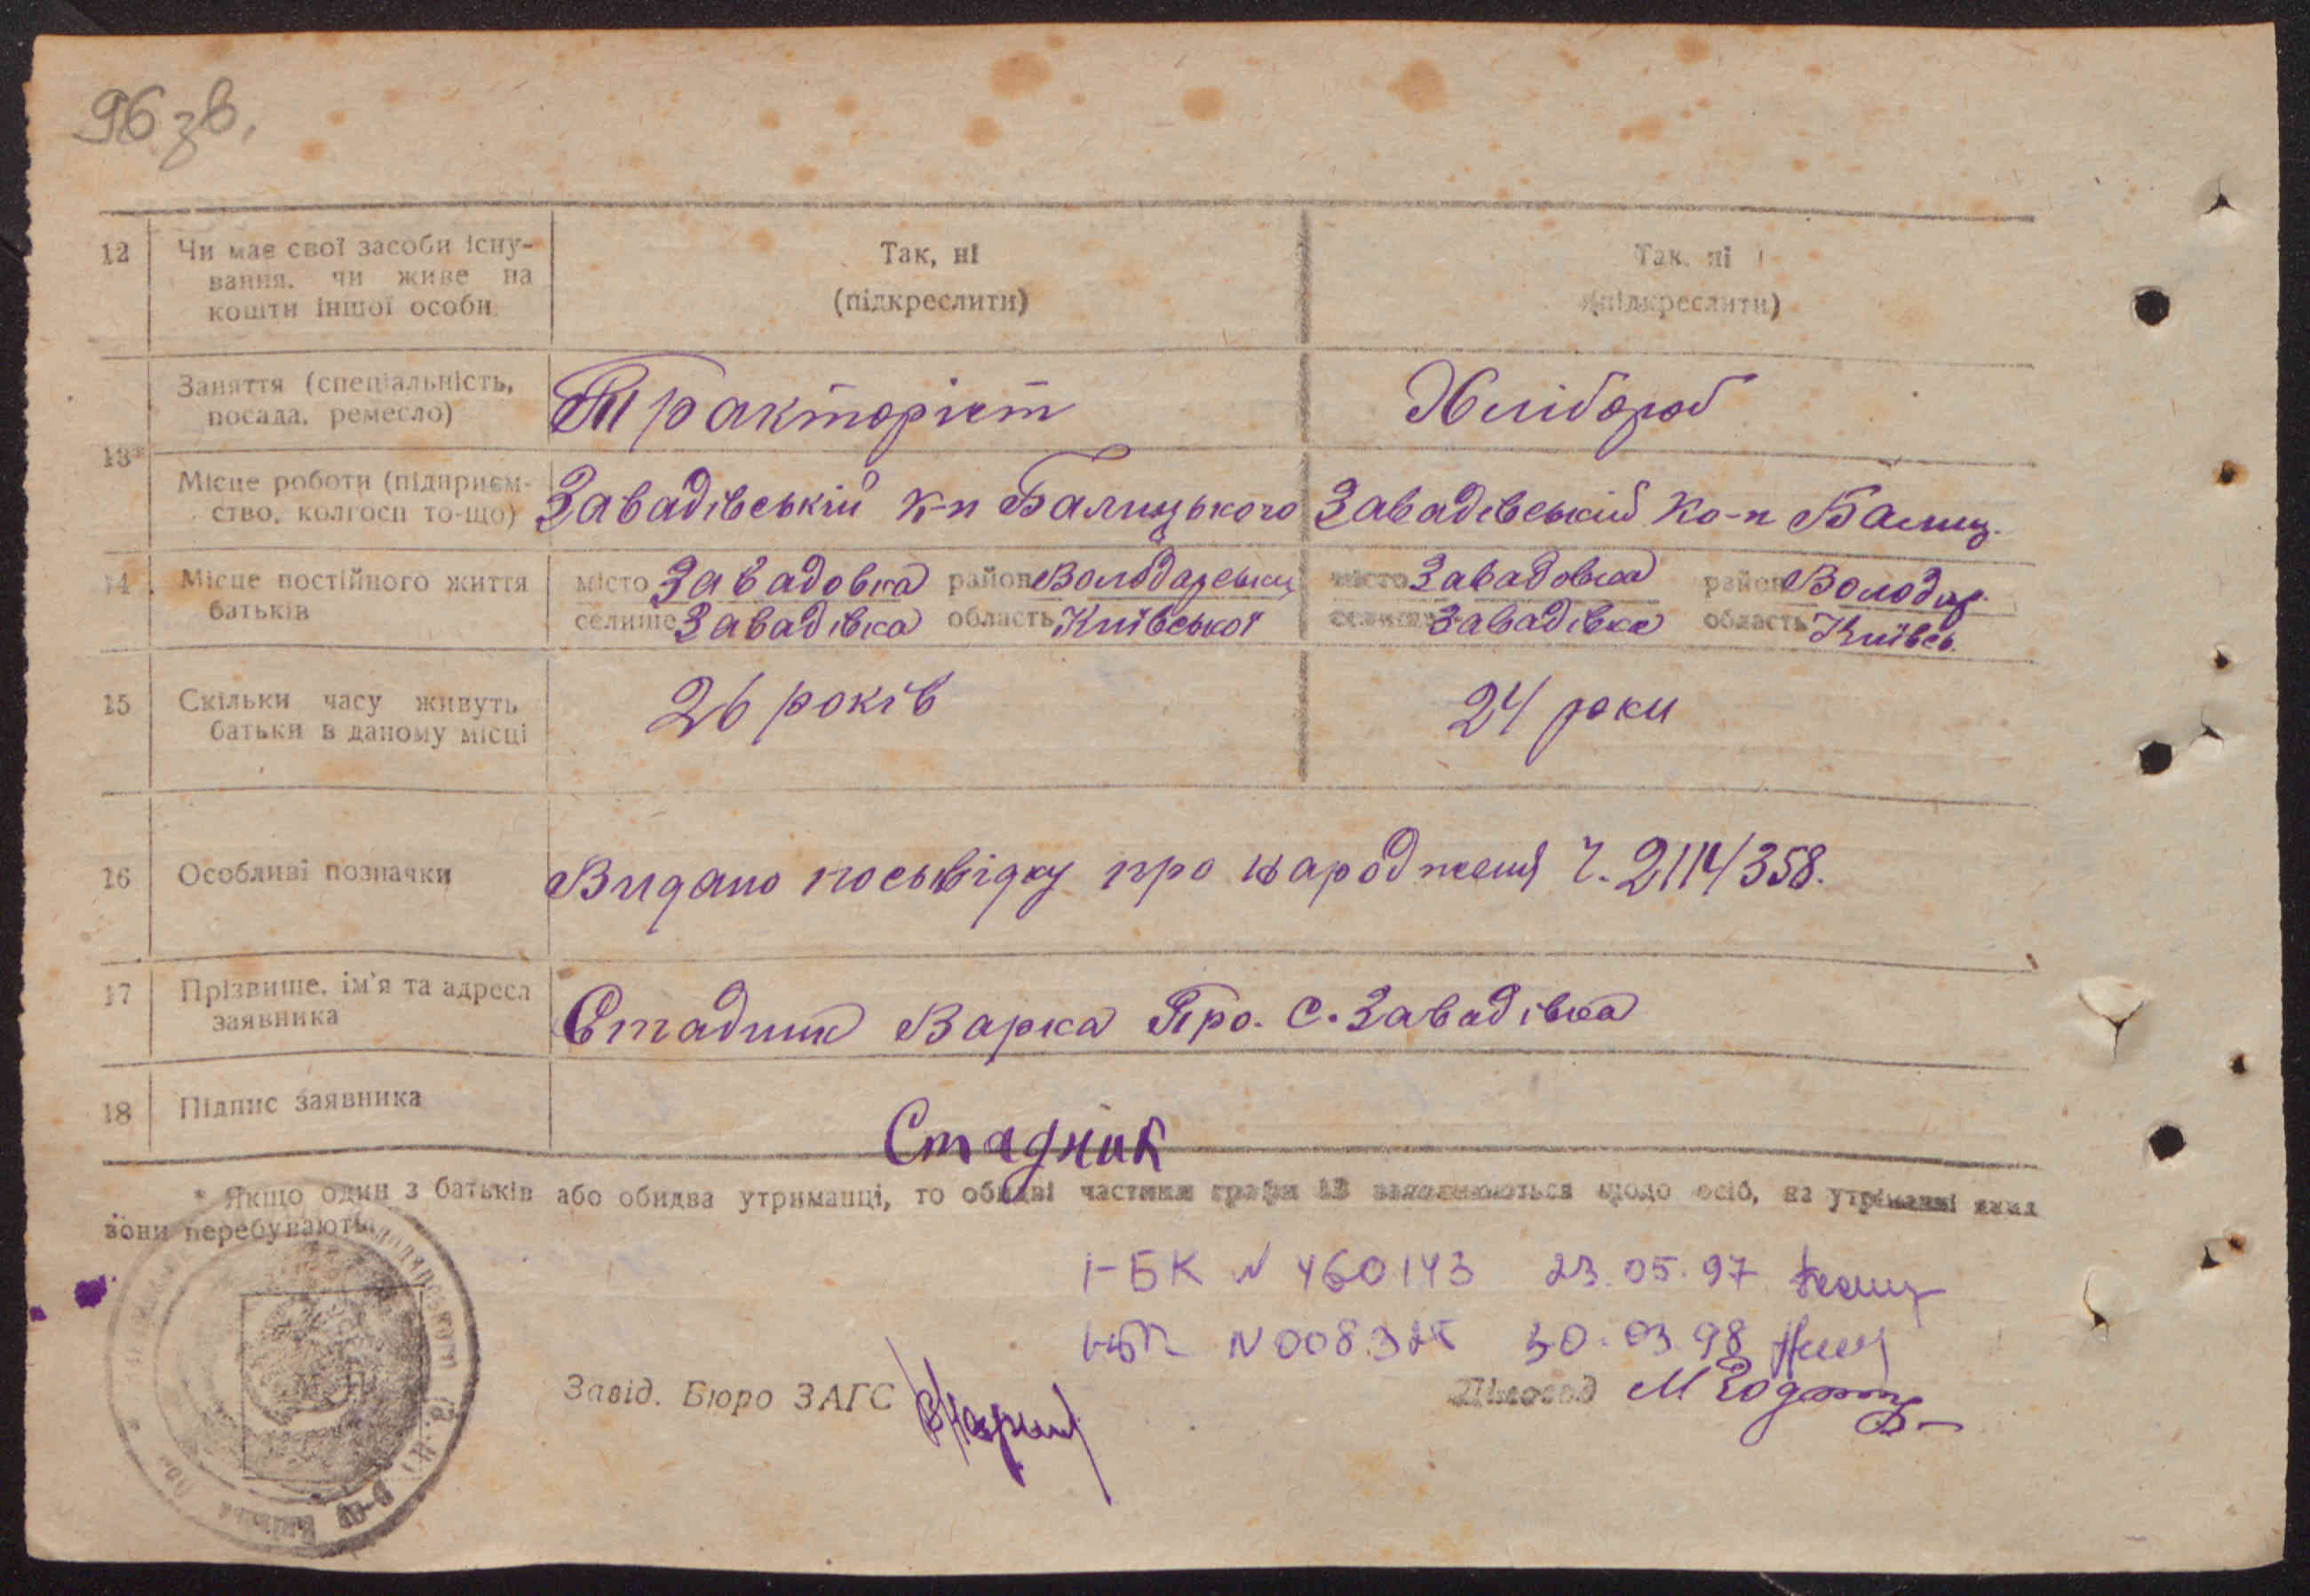 96 зв.
12 Чи має свої засоби існу- Так, ні Так, ні
вання, чи живе на (підкреслити) (підкреслити)
кошти іншої особи
13* Заняття (спеціальність, Тракторіст Хлібороб
посада, ремесло)
Місце роботи (підприєм- Завадівській к-п Балицького Завадівській Ко-п Балиц.
ство, колгосп то-що)
14 Місце постійного життя місто Завадовка район Володарськи місто Завадовка район Володар
батьків селище Завадівка область Київської селище Завадівка область Київсь.
15 Скільки часу живуть 26 років 24 роки
батьки в даному місці
16 Особливі позначки Видано посьвідку про народженя Ч. 2114/358.
17 Прізвище, ім'я та адреса Стадник Варка Про. с. Завадівка
заявника
18 Підпис заявника Стадник
* Якщо один з батьків або обидва утриманці, то обидві частини графи 13 заповнюються щодо осіб, на утриманні яких
вони перебувають.
І-БК N 460143 23.05.97
N 00832 30.03.98
Завід. Бюро ЗАГС Діловод